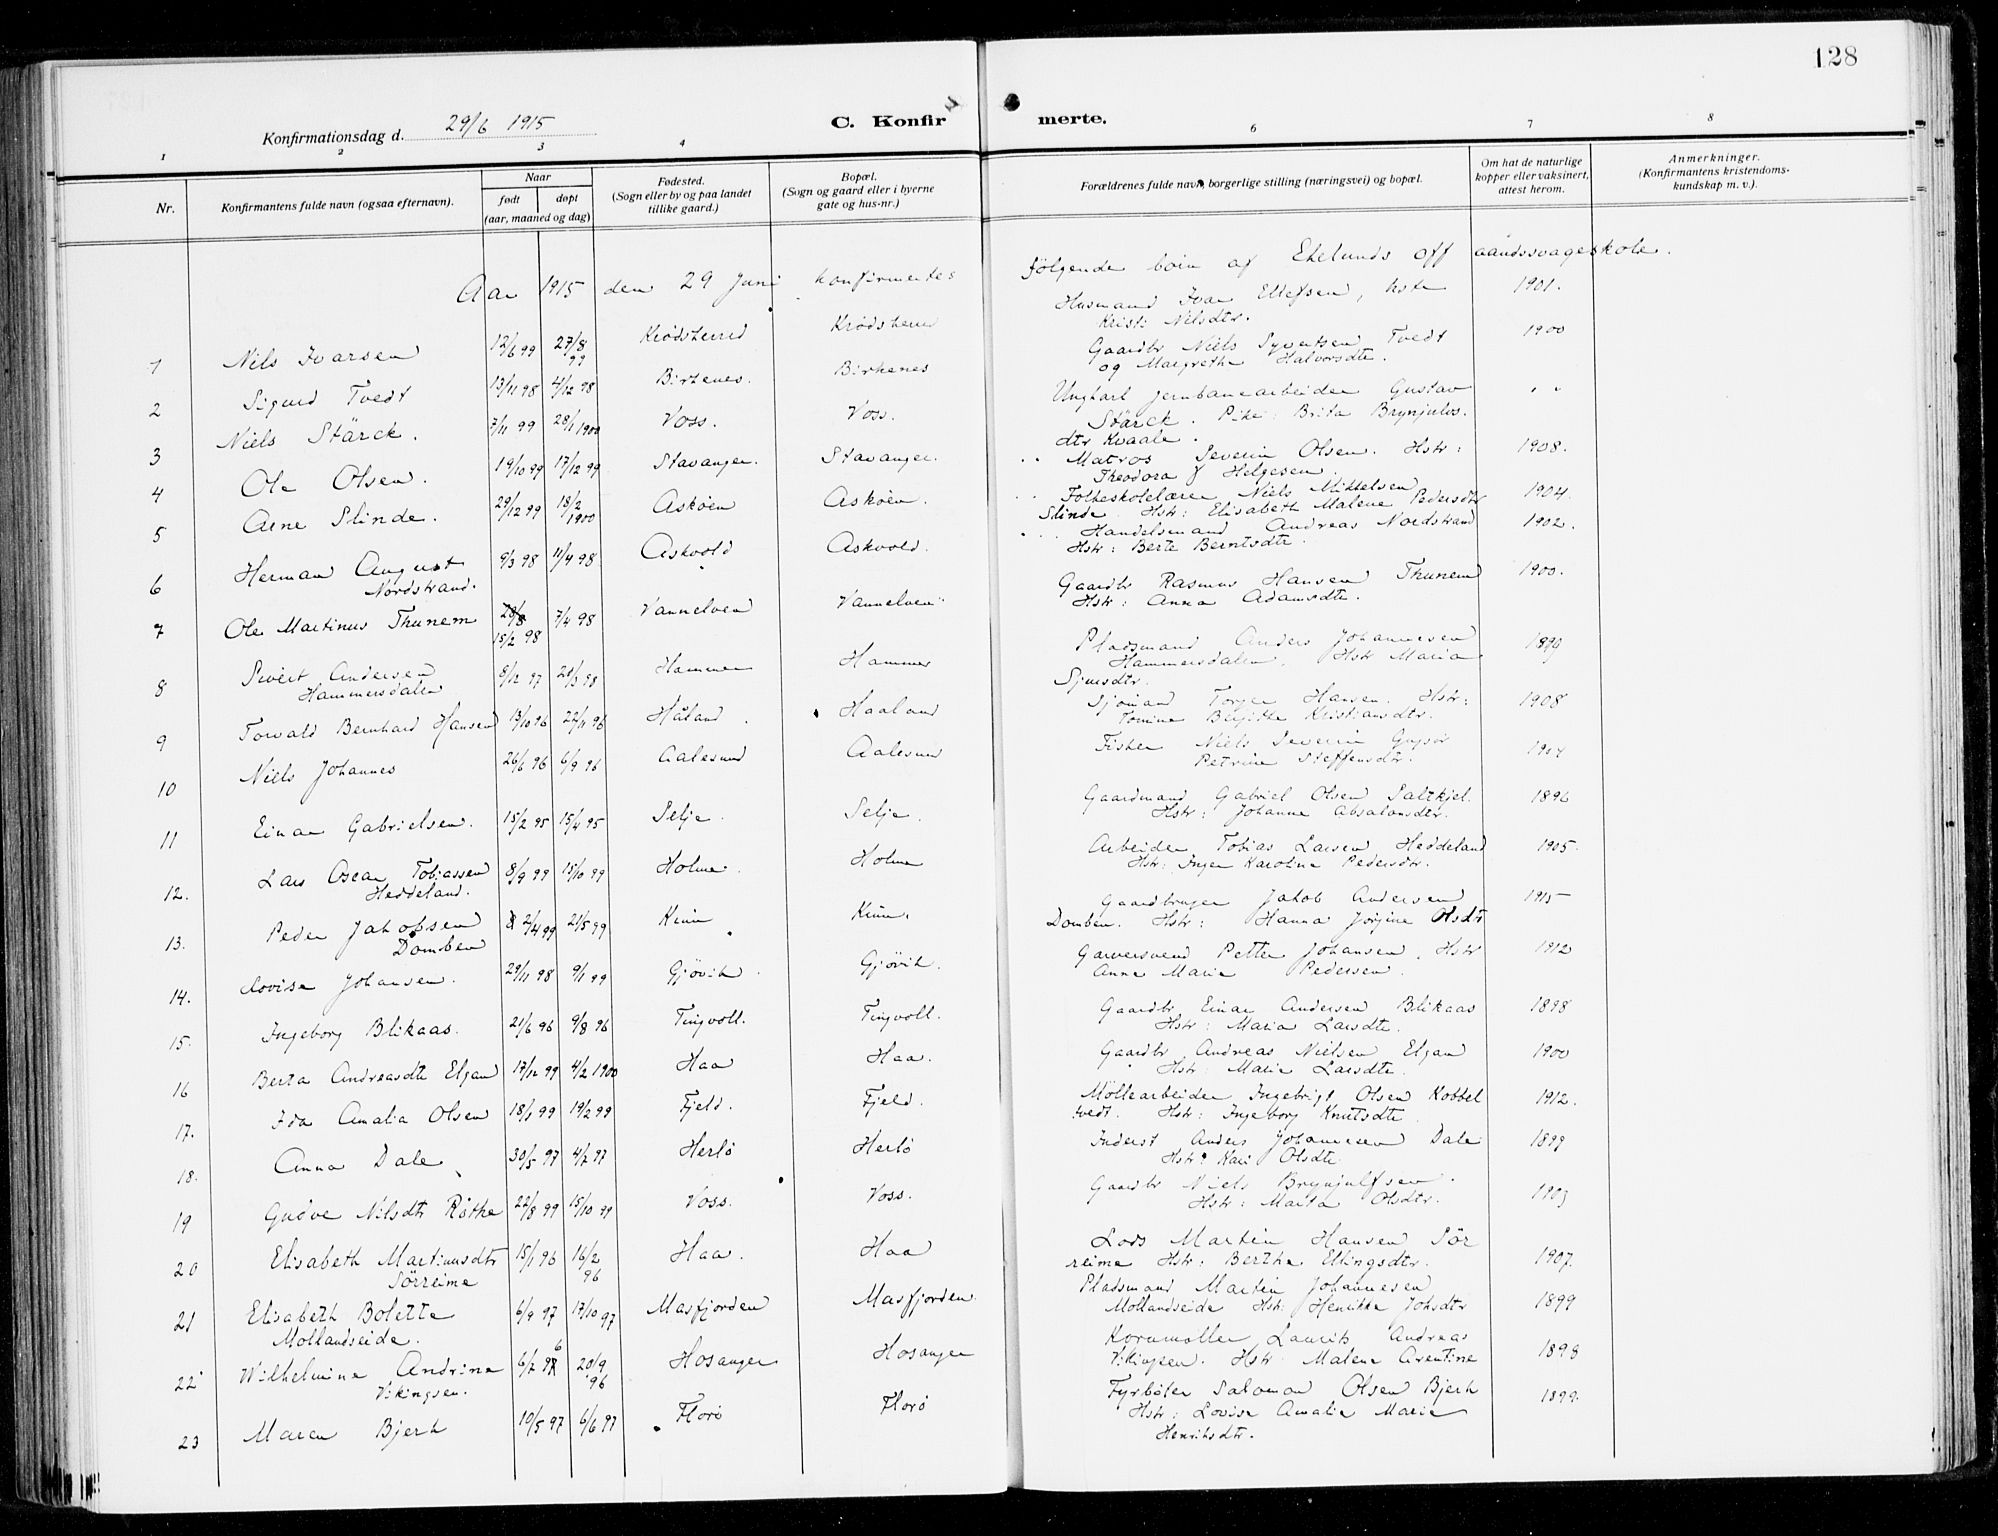 128
Konfirmationsdag d. 29/6 1915
C. Konfirmerte.
1 2 3 4 6 7 8
Nr.
Konfirmantens fulde navn (ogsaa efternavn).
Naar
født døpt
(aar, maaned og dag)
Fødested.
(Sogn eller by og paa landet
tillike gaard.)
Bopæl.
(Sogn og gaard eller i byerne
gate og hus-nr.)
Forældrenes fulde navn, borgerlige stilling (næringsvei) og bopæl.
Om hat de naturlige
kopper eller vaksinert,
attest herom.
Anmerkninger.
(Konfirmantens kristendoms-
kundskap m. v.).
Aar 1915 den 29 Juni konfirmertes følgende børn af Ekelunds off aandssvageskole.
1 Nils Ivarsen 12/6 99 27/8 99 Krødsherred Krødsherred Husmand Ivar Ellefsen, hstr 1901.
Kristi Nilsdtr.
2 Sigurd Tvedt 13/11 98 4/12 98 Birkenes. Birkenes Gaardbr Niels Syvertsen Tvedt 1900
og Margrethe Halvorsdtr.
3 Niels Stärck. 7/11 99 28/1 1900 Voss. Voss. Ungkarl jernbanearbeider Gustav " "
Stärck. Pike: Brita Brynjulvs.
dtr Kvaale.
4 Ole Olsen. 19/10 99 17/12 99 Stavanger. Stavanger. Matros Severin Olsen. Hstr: 1908.
Theodora J Helgesen.
5 Arne Slinde. 29/12 99 18/2 1900 Askøen Askøen. Folkeskolelærer Niels Mikkelsen 1904.
Slinde. Hstr: Elisabeth Malene Pedersdtr
6 Herman August 9/3 98 11/4 98 Askvold Askvold. Handelsmand Andreas Nordstrand 1902.
Nordstrand. Hstr: Berte Berntsdtr.
7 Ole Martinus Thunem 15/2 98 7/4 98 Vannelven Vannelven Gaardbr Rasmus Hansen Thunem 1900.
Hstr: Anna Adamsdtr.
8 Sivert Andersen 8/12 97 20/3 98 Hammer Hammer Pladsmand Anders Johannesen 1899
Hammersdalen Hammersdalen. Hstr Maria
Sjursdtr.
9 Torvald Bernhard Hansen 13/10 96 22/11 96 Håland. Haaland Sjømand Torger Hansen. Hstr: 1908
Tomine Birgitte Kristiansdtr.
10 Niels Johannes 26/6 96 6/9 96 Aalesund Aalesund Fisker Niels Severin
Petrine Steffensdtr.
11 Einar Gabrielsen. 15/2 95 15/4 95 Selje. Selje. Gaardmand Gabriel Olsen Saltkjel. 1896
Hstr: Johanne Absalonsdtr.
12. Lars Oscar Tobiassen 8/9 99 15/10 99 Holme. Holme Arbeider Tobias Larsen Heddeland 1905.
Heddeland. Hstr: Inger Karoline Pedersdtr.
13. Peder Jakobsen 2/4 99 21/5 99 Kinn Kinn. Gaardbruger Jakob Andersen 1915
Domben Domben. Hstr: Hanna Jørgine Olsdtr
14. Lovise Johansen. 29/11 98 9/1 99 Gjøvik. Gjøvik. Garversvend Petter Johansen. Hstr 1912
Anne Marie Pedersen.
15. Ingeborg Blikaas. 21/6 96 9/8 96 Tingvoll. Tingvoll. Gaardbr Einar Andersen Blikaas 1898
Hstr: Maria Larsdtr.
16 Berta Andreasdtr Elgan 17/12 99 4/2 1900 Haa Haa. Gaardbr Andreas Nielsen Elgan 1900
Hstr: Marie Larsdtr.
17. Ida Amalia Olsen 18/1 99 19/2 99 Fjeld. Fjeld. Møllearbeider Ingebrigt Olsen Kobbel 1912.
tvedt. Hstr: Ingeborg Knutsdtr.
18. Anna Dale 30/5 97 4/7 97 Herlø Herlø Inderst Anders Johannesen Dale 1899
Hstr: Kari Olsdtr.
19 Gudve Nilsdtr Røthe 22/8 99 15/10 99 Voss. Voss. Gaardbr Niels Brynjulfsen. 1903
Hstr: Marta Olsdtr.
20 Elisabeth Martinusdtr 15/1 96 16/2 96 Haa. Haa Lods Martin Hansen Sör
Sörreime reime Hstr: Berthe Ellingsdtr. 1907.
21 Elisabeth Bolette 6/9 97 17/10 97 Masfjorden Masfjorden Pladsmand Martin Johannesen
Mollandseide. Mollandseide Hstr: Henrikke Johsdtr 1899
22 Wilhelmine Andrine 6/7 96 20/9 96 Hosanger Hosanger Kornmøller Laurits Andreas
Vikingsen. Vikingsen. Hstr Malene Arentine 1898
23 Maren Bjerk 10/5 97 6/6 97 Florø Florø Fyrbøter Salomon Olsen Bjerk 1899.
Hstr: Lovise Amalie Marie
Henriksdtr.